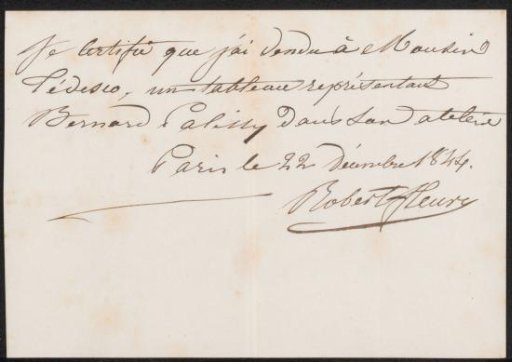 Je certifie que j'ai vendu à Monsieur
Tédesco, un tableau représentant
Bernard Palissy dans son atelier
Paris le 22 décembre 1844.
Robert Fleury